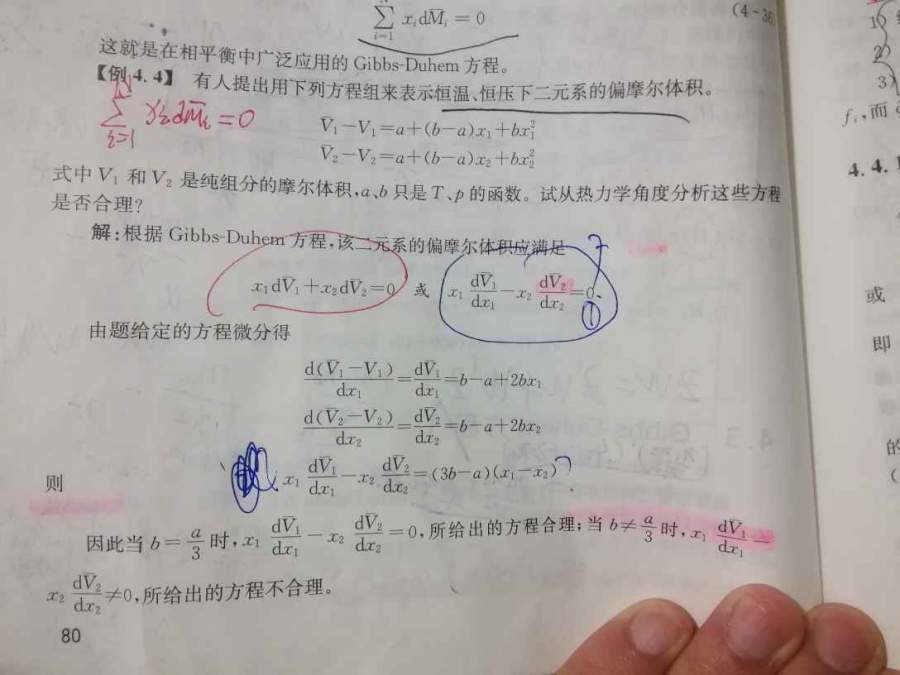 N
∑ xᵢdM̄ᵢ = 0
i=1
(4-36
这就是在相平衡中广泛应用的 Gibbs-Duhem 方程。
【例 4.4】 有人提出用下列方程组来表示恒温、恒压下二元系的偏摩尔体积。
N
∑ xᵢdM̄ᵢ = 0
i=1
V̄₁-V₁=a+(b-a)x₁+bx₁²
V̄₂-V₂=a+(b-a)x₂+bx₂²
式中 V₁ 和 V₂ 是纯组分的摩尔体积,a、b 只是 T、p 的函数。试从热力学角度分析这些方程
是否合理?
解:根据 Gibbs-Duhem 方程,该二元系的偏摩尔体积应满足
x₁dV̄₁+x₂dV̄₂=0 或 x₁ dV̄₁/dx₁ - x₂ dV̄₂/dx₂ =0
①
由题给定的方程微分得
d(V̄₁-V₁)/dx₁ = dV̄₁/dx₁ = b-a+2bx₁
d(V̄₂-V₂)/dx₂ = dV̄₂/dx₂ = b-a+2bx₂
则
x₁ dV̄₁/dx₁ - x₂ dV̄₂/dx₂ = (3b-a)(x₁-x₂)
因此当 b = a/3 时, x₁ dV̄₁/dx₁ - x₂ dV̄₂/dx₂ = 0,所给出的方程合理;当 b ≠ a/3 时, x₁ dV̄₁/dx₁ -
x₂ dV̄₂/dx₂ ≠ 0,所给出的方程不合理。
80
1)
2)
3)
fᵢ,而
4.4.
或
即
的
(